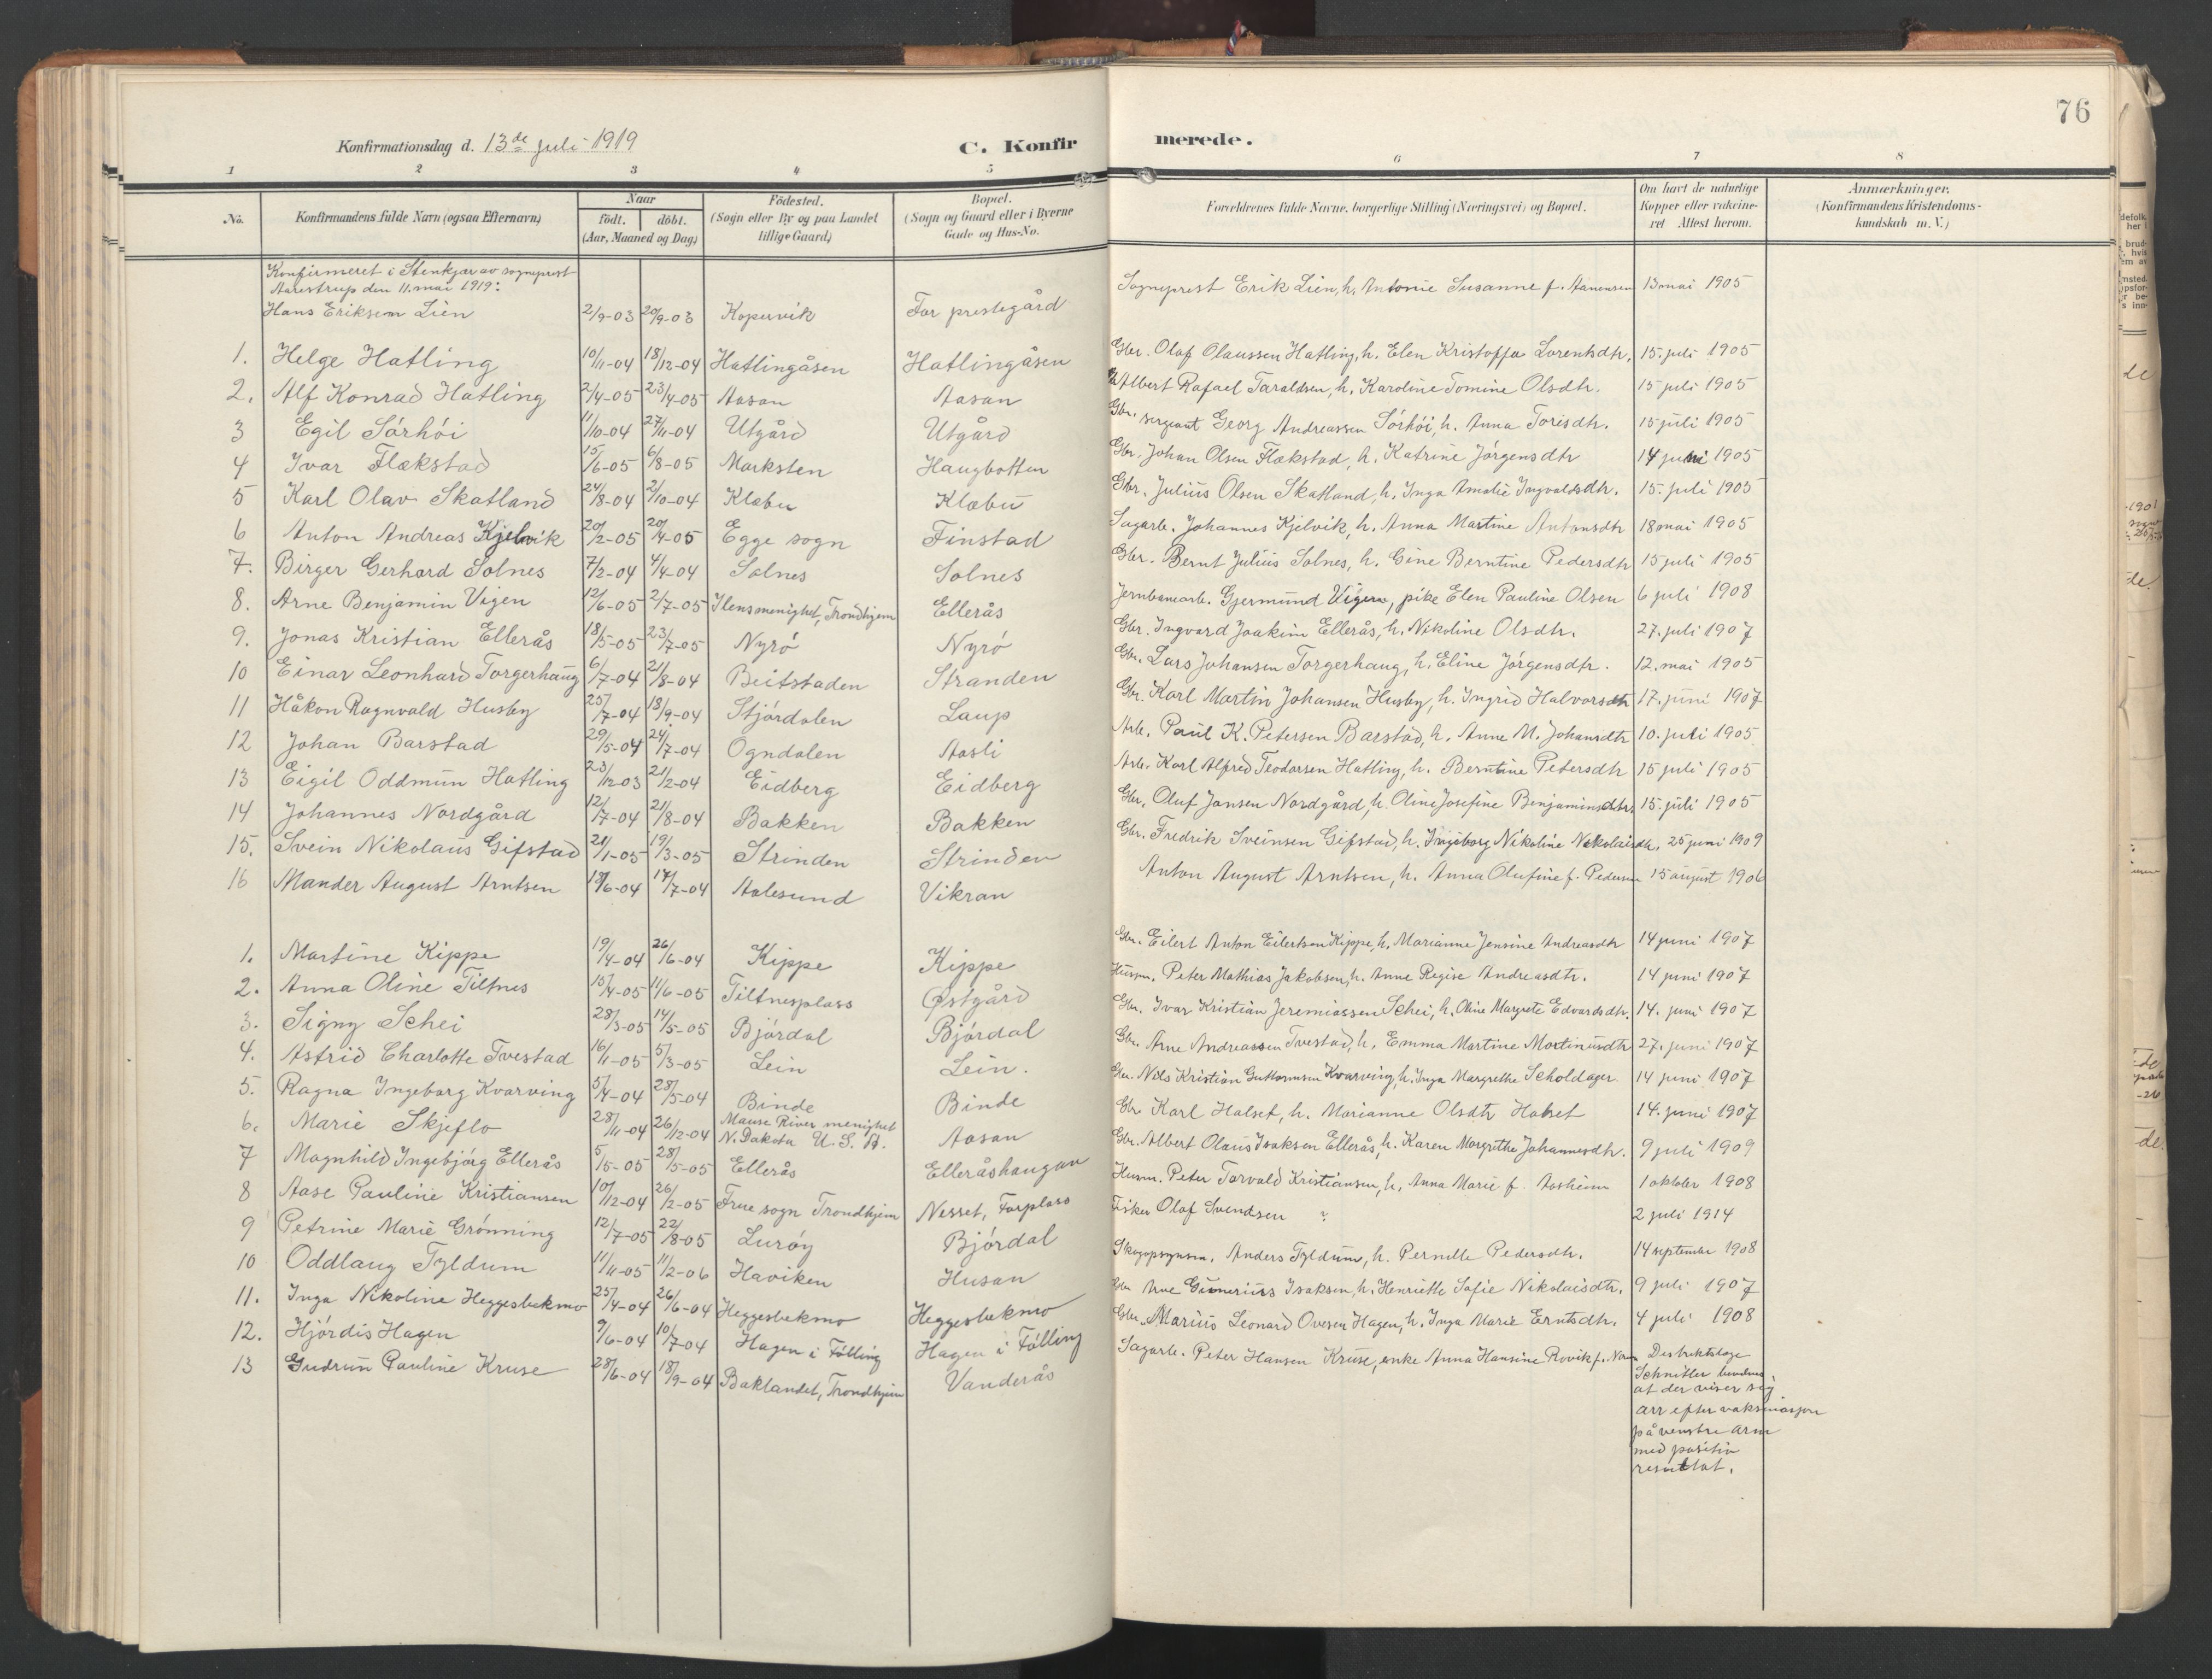 76
Konfirmationsdag d. 13de juli 1919
C. Konfirmerede.
1 2 3 4 5 6 7 8
No. Konfirmandens fulde Navn (ogsaa Efternavn) Naar födt. döbt. (Aar, Maaned og Dag) Födested. (Sogn eller By og paa Landet tillige Gaard) Bopæl. (Sogn og Gaard eller i Byerne Gade og Hus-No. Forældrenes fulde Navne, borgerlige Stilling (Næringsvei) og Bopæl. Om havt de naturlige Kopper eller vakcineret Attest herom. Anmærkninger. (Konfirmandens Kristendomskundskab m. V.)
Konfirmeret i Stenkjær av sogneprest
Aarestrup den 11. mai 1919:
Hans Eriksen Lien 2/9-03 20/9-03 Kopervik For prestegård Sogneprest Erik Lien, h. Antonie Susanne f. Aanensen 13 mai 1905
1. Helge Hatling 10/11-04 18/12-04 Hatlingåsen Hatlingåsen Gbr. Olaf Olaussen Hatling, h. Elen Kristoffa Lorentsdtr. 15. juli 1905
2. Alf Konrad Hatling 2/4-05 23/4-05 Aasan Aasan Albert Rafael Taraldsen, h. Karoline Tomine Olsdtr. 15 juli 1905
3 Egil Sörhöi 11/10-04 27/11-04 Utgård Utgård Gbr. sergeant Georg Andreassen Sörhöi, h. Anna Torisdtr. 15 juli 1905
4 Ivar Flækstad 15/6-05 6/8-05 Marksten Haugbotten Gbr. Johan Olsen Flækstad, h. Katrine Jörgensdtr 14 juni 1905
5 Karl Olav Skatland 24/8-04 2/10-04 Klæbu Klæbu Gbr. Julius Olsen Skatland, h. Inga Amalie Ingvaldsdtr. 15. juli 1905
6 Anton Andreas Kjelvik 20/2-05 20/4-05 Egge sogn Finstad Sagarb. Johannes Kjelvik, h. Anna Martine Antonsdtr 18 mai 1905
7. Birger Gerhard Solnes 7/2-04 4/4-04 Solnes Solnes Gbr. Bernt Julius Solnes, h. Gine Berntine Pedersdtr 15 juli 1905
8. Arne Benjamin Vigen 12/6-05 2/7-05 Ilens menighet, Trondhjem Ellerås Jernbanearb. Gjermund Vigen, pike Elen Pauline Olsen 6 juli 1908
9. Jonas Kristian Ellerås 18/5-05 23/7-05 Nyrö Nyrö Gbr. Ingvard Joakim Ellerås, h. Nikoline Olsdtr. 27. juli 1907
10 Einar Leonhard Torgerhaug 6/7-04 21/8-04 Beitstaden Stranden Gbr. Lars Johansen Torgerhaug, h. Eline Jörgensdtr. 12. mai 1905
11 Håkon Ragnvald Husby 25/7-04 18/9-04 Stjördalen Laup Gbr. Karl Martin Johansen Husby, h. Ingrid Halvorsdtr 17. juni 1907
12 Johan Barstad 29/5-04 24/7-04 Ogndalen Aasli Arb. Paul K. Petersen Barstad, h. Anne M. Johansdtr 10. juli 1905
13 Eigil Oddmun Hatling 23/12-03 21/2-04 Eidberg Eidberg Arb. Karl Alfred Teodorsen Hatling, h. Berntine Petersdtr 15 juli 1905
14 Johannes Nordgård 12/7-04 21/8-04 Bakken Bakken Gbr. Oluf Jonsen Nordgård, h. Oline Josefine Benjaminsdtr. 15. juli 1905
15. Svein Nikolaus Gifstad 21/1-05 19/3-05 Strinden Strinden Gbr. Fredrik Sveinsen Gifstad, h. Ingeborg Nikoline Nikolaisdtr. 25 juni 1909
16 Mander August Arntsen 18/6-04 17/7-04 Aalesund Vikran Anton August Arntsen, h. Anna Olufine f. Pedersen 15 august 1906
1. Martine Kippe 19/4-04 26/6-04 Kippe Kippe Gbr. Eilert Anton Eilertsen Kippe, h. Marianne Jensine Andreasdtr 14 juni 1907
2. Anna Oline Tiltnes 15/4-05 11/6-05 Tiltnesplass Østgård Husm. Peter Mathias Jakobsen, h. Anne Regise Andreasdtr. 14 juni 1907
3. Signy Schei 28/3-05 14/5-05 Björdal Björdal Gbr. Ivar Kristian Jeremiassen Schei, h. Oline Margrete Edvardsdtr. 14. juni 1907
4. Astrid Charlotte Tvestad 16/1-05 5/3-05 Lein Lein. Gbr. Arne Andreassen Tvestad, h. Emma Martine Martinusdtr 27. juni 1907
5. Ragna Ingeborg Kvarving 5/4-04 28/5-04 Binde Binde Gbr. Nils Kristian Guttormsen Kvarving, h. Inga Margrethe Scholdager 14 juni 1907
6. Marie Skjeflo 28/11-04 26/12-04 Mause River menighet N. Dakota U. S. A. Aasan Gbr. Karl Halset, h. Marianne Olsdtr Halset 14. juni 1907
7 Magnhild Ingebjörg Ellerås 5/5-05 28/5-05 Ellerås Elleråshaugan Gbr. Albert Olaus Isaksen Ellerås, h. Karen Margrethe Johannesdtr. 9 juli 1909
8 Aase Pauline Kristiansen 10/12-04 26/2-05 Frue sogn Trondhjem Nesset, Forplass Husm. Peter Torvald Kristiansen, h. Anna Marie f. Aasheim 1 oktober 1908
9 Petrine Marie Grönning 12/7-05 22/8-05 Luröy Björdal Fisker Olaf Svendsen ? 2 juli 1914
10 Oddlaug Tyldum 11/11-05 11/2-06 Haviken Husan Skogopsynsm. Anders Tyldum, h. Pernelle Pedersdtr. 14 september 1908
11. Inga Nikoline Heggesbekmo 25/4-04 26/6-04 Heggesbekmo Heggesbekmo Gbr Arne Gunerius Isaksen, h. Henriette Sofie Nikolaisdtr. 9 juli 1907
12. Hjördis Hagen 9/6-04 10/7-04 Hagen i Fölling Hagen i Fölling Gbr. Marius Leonard Ovesen Hagen, h. Inga Marie Erntsdtr. 4 juli 1908
13 Gudrun Pauline Kruse 28/6-04 18/9-04 Baklandet, Trondhjem Vanderås Sagarb. Peter Hansen Kruse, enke Anna Hansine Rovik f. Distriktslæge
Schnitler bevidner
at der viser sig
arr efter vaksinasjon
på venstre arm
med positiv
resultat.